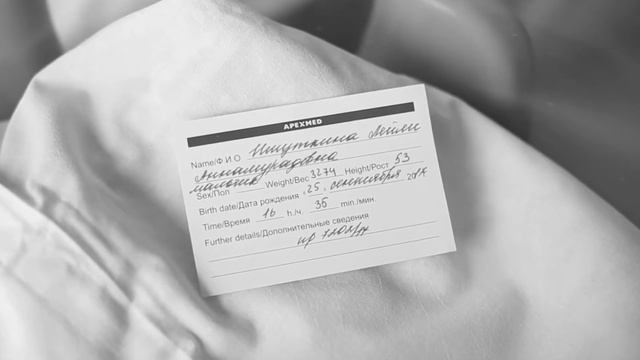 APEXMED
Name/Ф.И.О Ишуткина Лейли
Аннамурадовна
мальчик
Sex/Пол Weight/Вес 3274 Height/Рост 53
Birth date/Дата рождения «25» сентября 2017
Time/Время 16 h./ч. 35 min./мин.
Further details/Дополнительные сведения